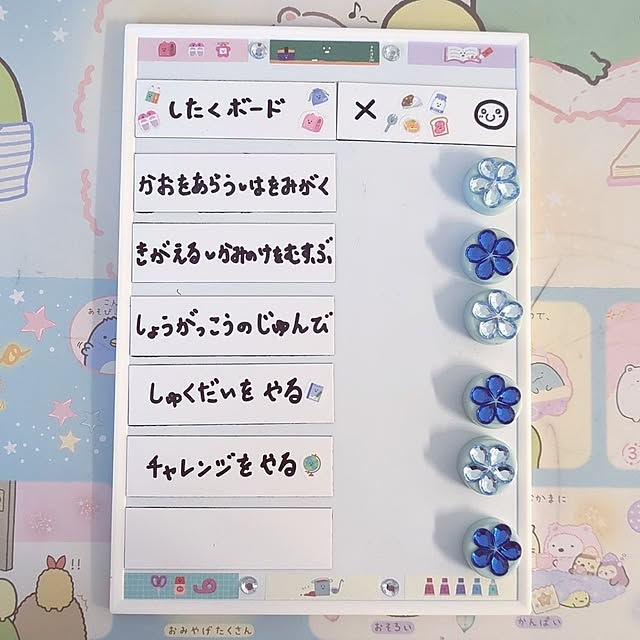 したくボード
×
かおをあらう・はをみがく
きがえる・かみのけをむすぶ
しょうがっこうのじゅんび
しゅくだいを やる
チャレンジを やる
!!
おみやげたくさん
おそろい
かんぱい